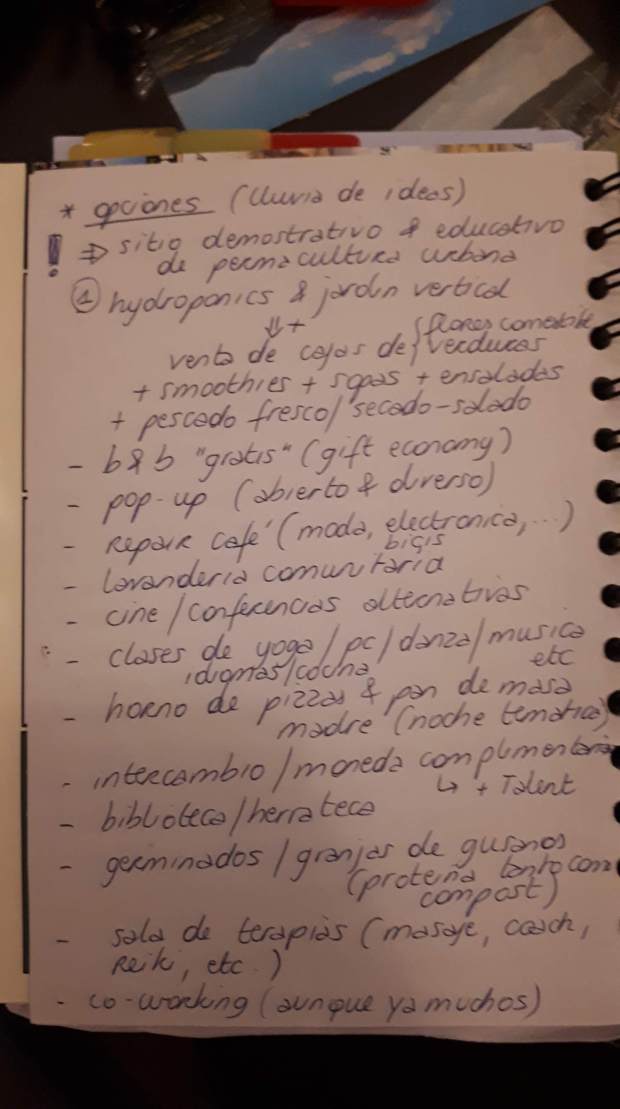 * opciones (lluvia de ideas)
! ⇒ sitio demostrativo & educativo
de permacultura urbana
① hydroponics & jardin vertical
⇓ + { flores comestible
venta de cajas de { verduras
+ smoothies + sopas + ensaladas
+ pescado fresco/secado-salado
- b&b "gratis" (gift economy)
- pop-up (abierto & diverso)
- Repair café (moda, electronica, ...)
bicis
- lavanderia comunitaria
- cine/conferencias alternativas
- clases de yoga/pc/danza/musica
idiomas/cocina etc
- horno de pizzas & pan de masa
madre (noche tematica)
- intercambio/moneda complimentaria
↳ + Talent
- biblioteca/herrateca
- germinados/granjas de gusanos
(proteina tanto como
compost)
- sala de terapias (masaje, coach,
Reiki, etc.)
- co-working (aunque ya muchos)